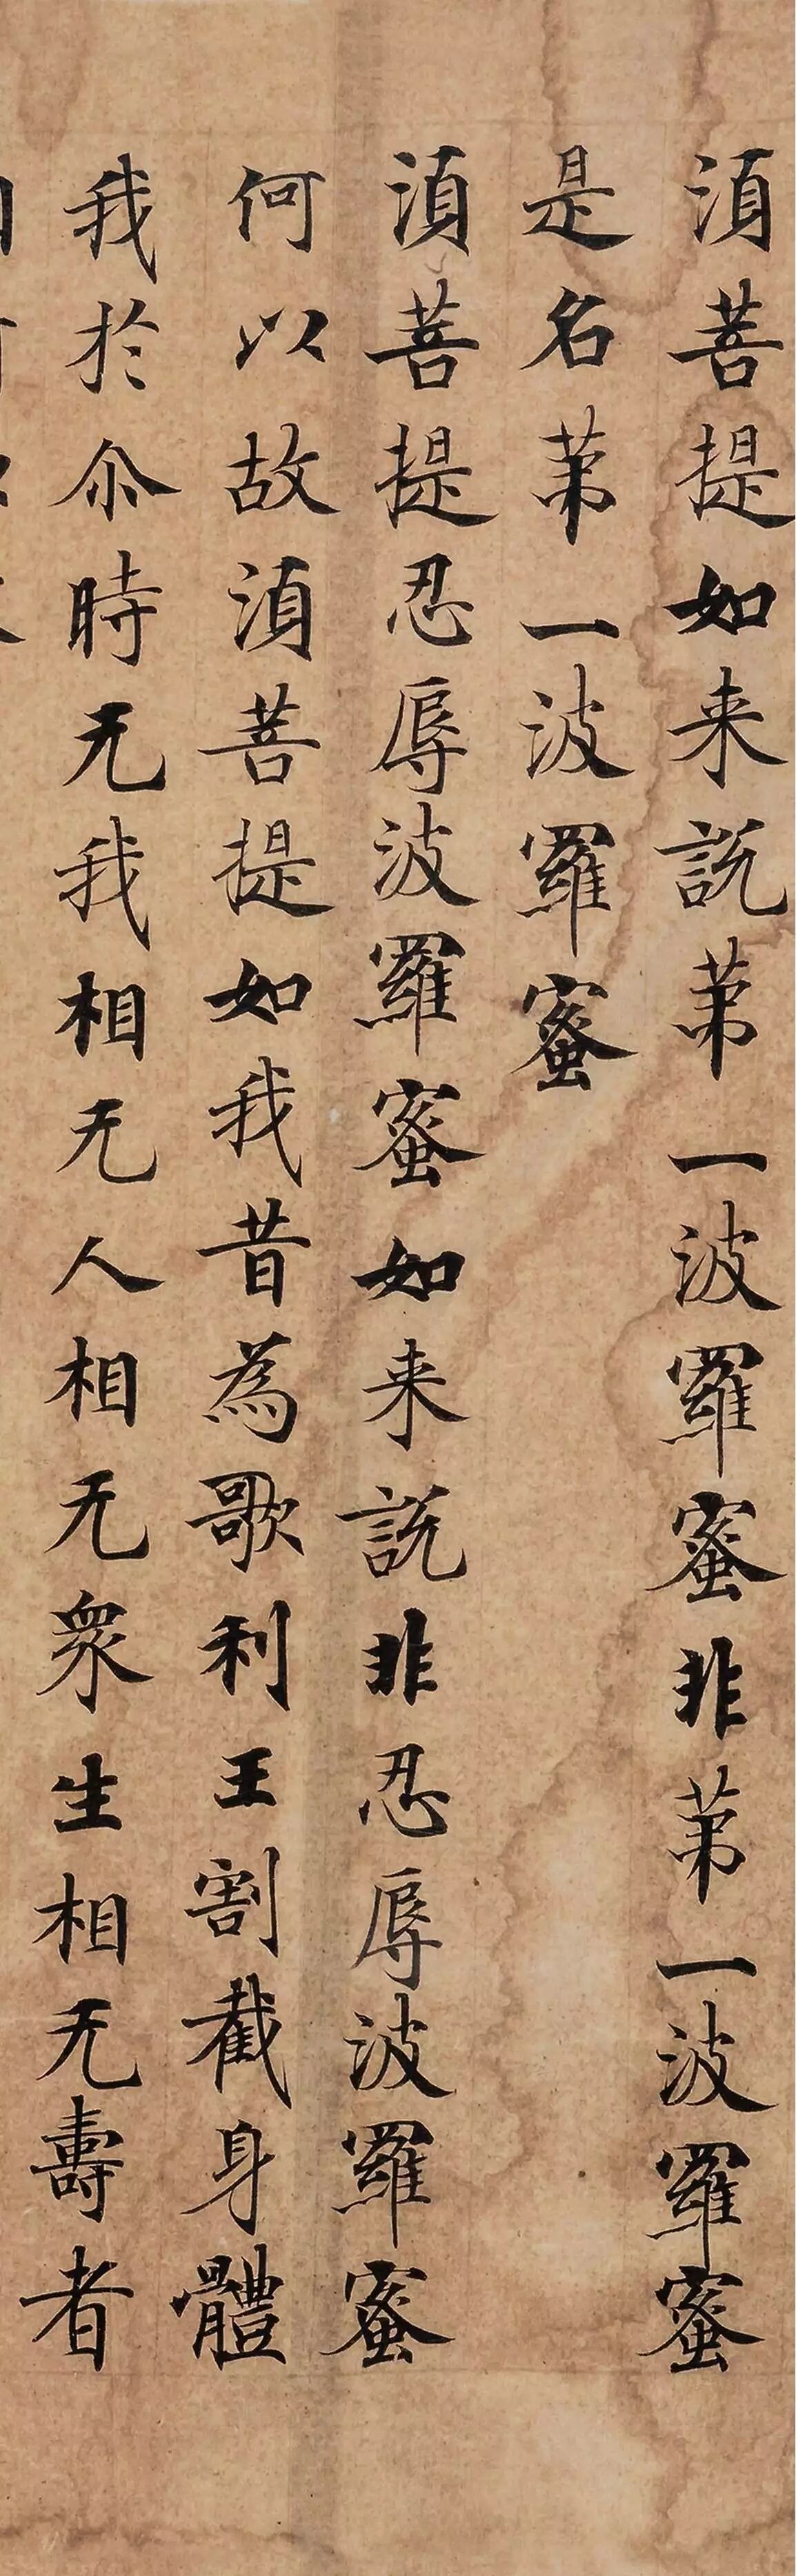 湏菩提如来說苐一波羅蜜非苐一波羅蜜
是名苐一波羅蜜
湏菩提忍辱波羅蜜如来說非忍辱波羅蜜
何以故湏菩提如我昔為歌利王割截身體
我於尒時无我相无人相无衆生相无壽者